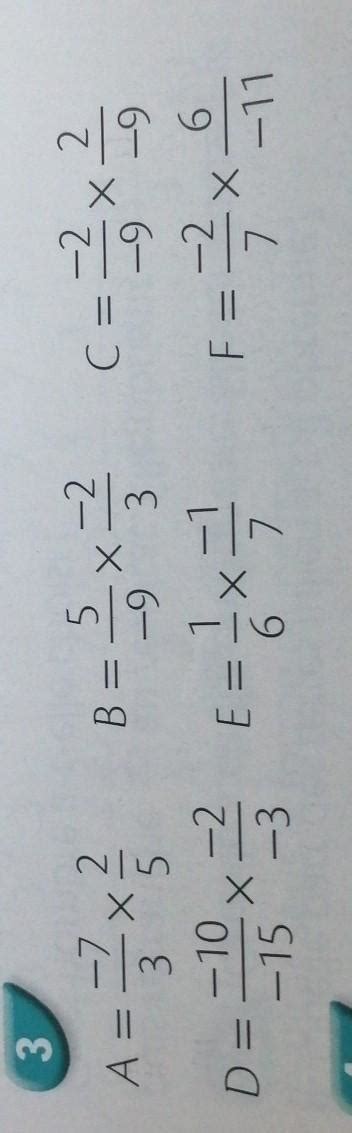 3
A = \frac{-7}{3} × \frac{2}{5} B = \frac{5}{-9} × \frac{-2}{3} C = \frac{-2}{-9} × \frac{2}{-9}
D = \frac{-10}{-15} × \frac{-2}{-3} E = \frac{1}{6} × \frac{-1}{7} F = \frac{-2}{7} × \frac{6}{-11}